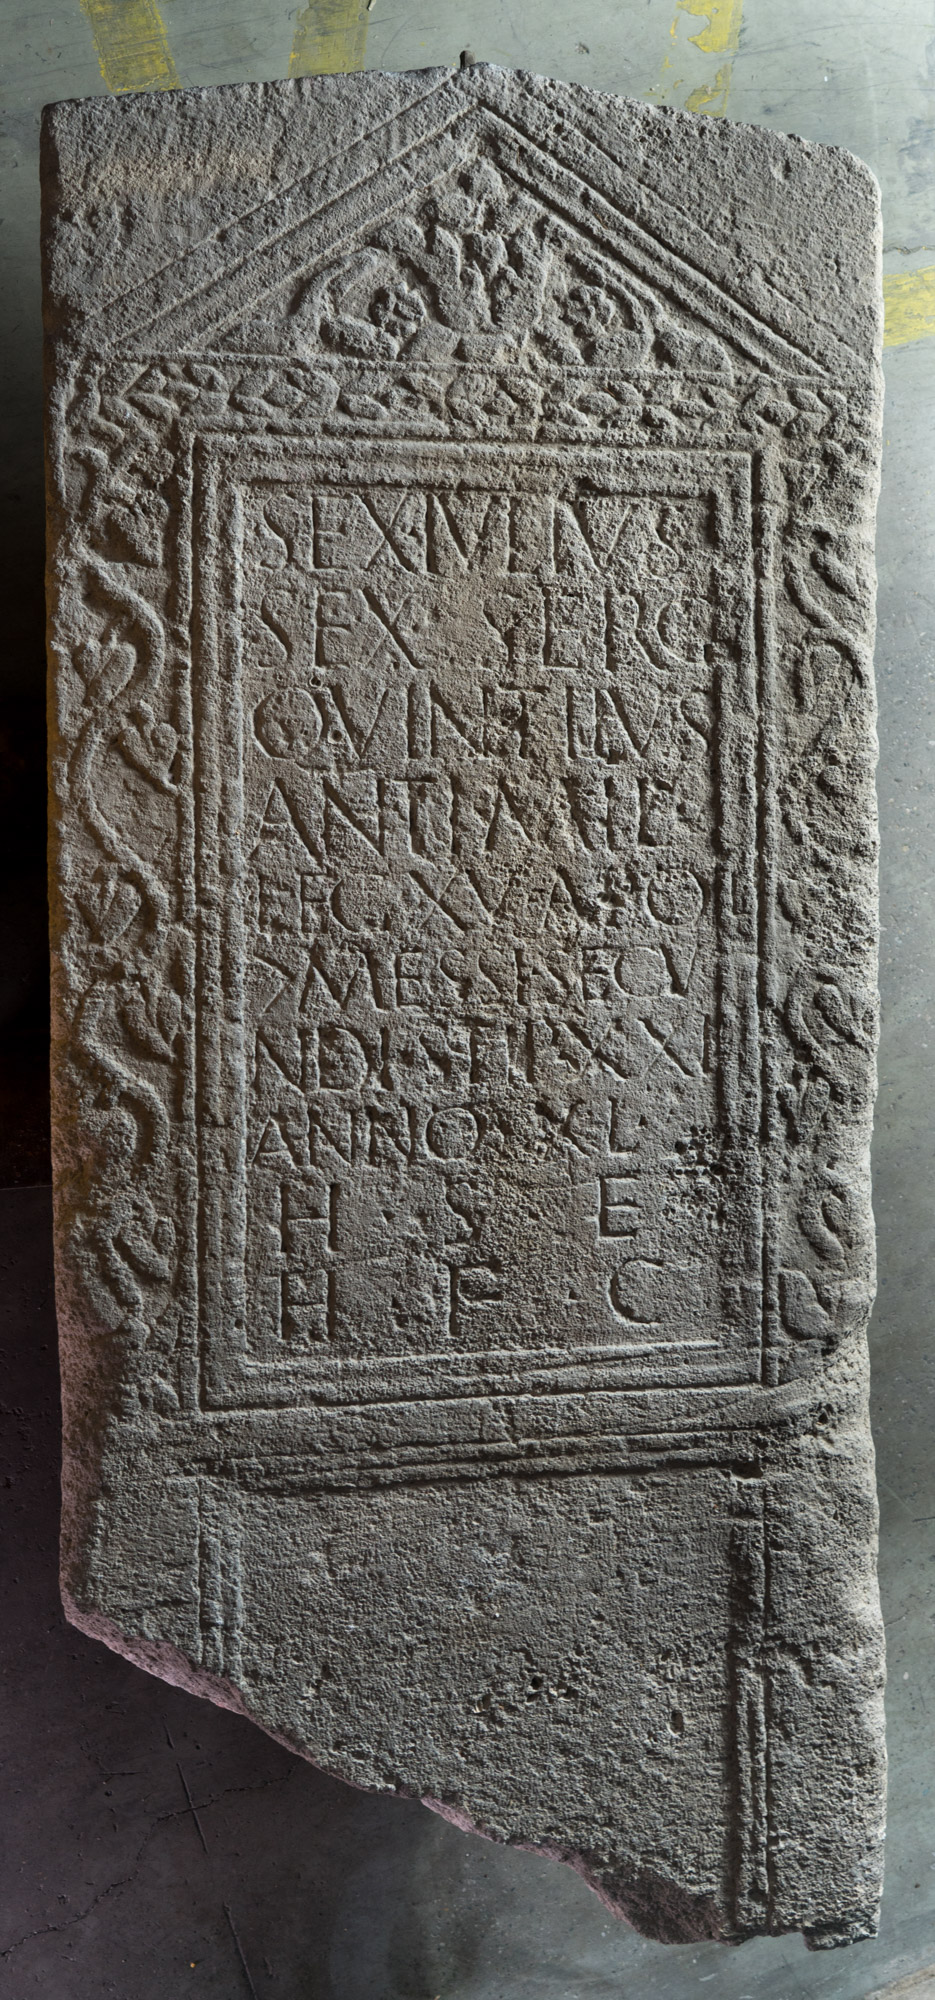 SEX IVLIVS
SEX SERG
QVINTILVS
ANTI MILE
LEG XV APO
> MESSI SECV
NDI STIP XXI
ANNO XL
H S E
H F C